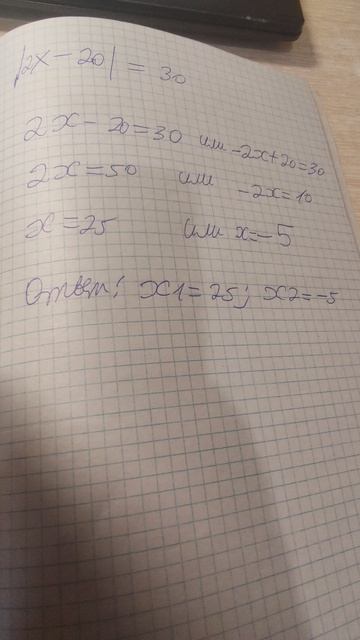 |2x - 20| = 30
2x - 20 = 30 или -2x+20=30
2x = 50 или -2x=10
x = 25 или x=-5
Ответ: x1 = 25; x2=-5